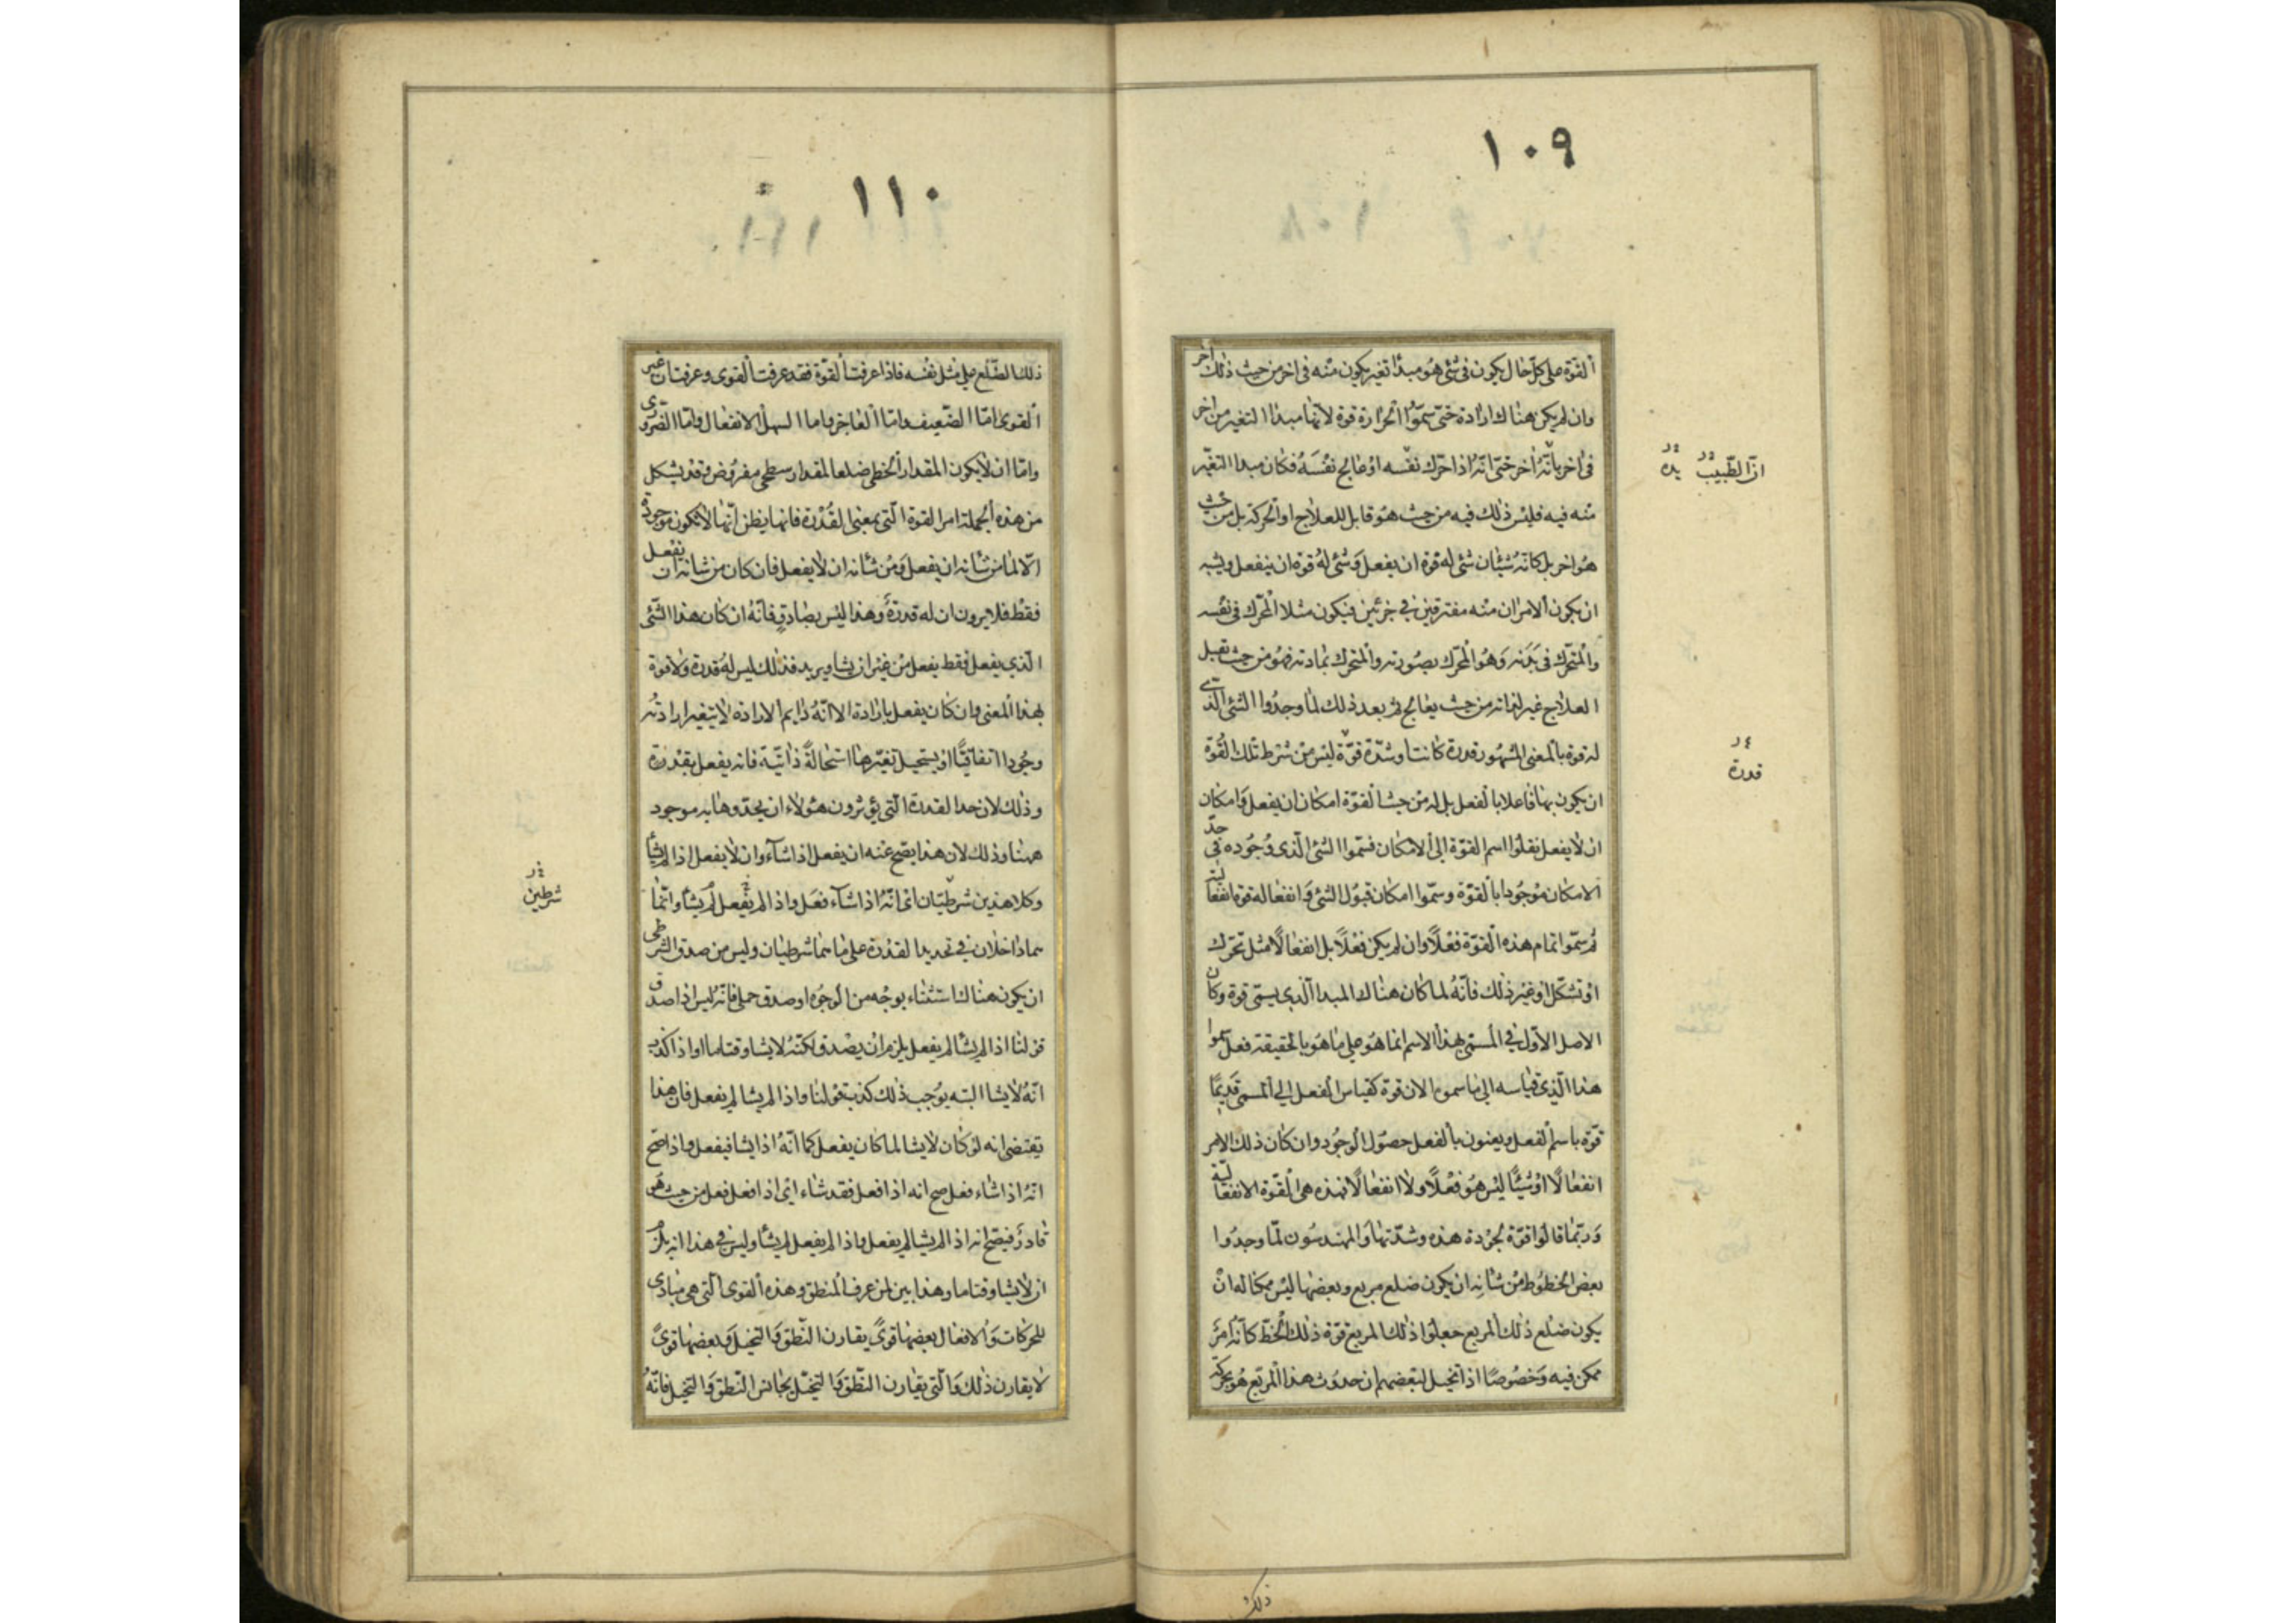 ١٠٩
القوة على كل حال يكون فى شئ هو مبدأ تغير يكون منه فى اخر من حيث ذلك اخر
وان لم يكن هناك ارادة حتى سموا الحرارة قوة لانها مبدا التغير من اخر
فى اخر بانه اخر حتى انه اذا حرك نفسه او عالج نفسه فكان مبدا التغير
منه فيه فليس ذلك فيه من حيث هو قابل للعلاج او الحركة بل من حيث
هو اخر بل كانه شيئان شئ له قوة ان يفعل وشئ له قوة ان ينفعل ويشبه
ان يكون الامران منه مفترقين فى جزئين فيكون مثلا المحرك فى نفسه
والمتحرك فى بدنه وهو المحرك بصورته والمتحرك بمادته فهو من حيث تقبل
العلاج غير لذاته من حيث يعالج ثم بعد ذلك لما وجدوا الشئ الذى
له قوة بالمعنى المشهور قدرة كانت او شدة قوة ليس من شرط تلك القوة
ان يكون بها فاعلا بالفعل بل له من حيث القوة امكان ان يفعل وامكان
ان لا يفعل نقلوا اسم القوة الى الامكان فسموا الشئ الذى وجوده فى حد
الامكان موجودا بالقوة وسموا امكان قبول الشئ وانفعاله قوة انفعالية
ثم سموا تمام هذه القوة فعلا وان لم يكن فعلا بل انفعالا مثل تحرك
او تشكل او غير ذلك فانه لما كان هناك المبدا الذى يسمى قوة وكان
الاصل الاول فى المسمى بهذا الاسم انما هو على ما هو بالحقيقة فعل سموا
هذا الذى قياسه الى ما سموه الان قوة كقياس الفعل الى المسمى قديما
قوة باسم الفعل ويعنون بالفعل حصول الوجود وان كان ذلك الامر
انفعالا او شيئا ليس هو فعلا ولا انفعالا فهذه هى القوة الانفعالية
وربما قالوا قوة لجودة هذه وشدتها والمهندسون لما وجدوا
بعض الخطوط من شانه ان يكون ضلع مربع وبعضها ليس ممكنا له ان
يكون ضلع ذلك المربع جعلوا ذلك المربع قوة ذلك الخط كانه امر
ممكن فيه وخصوصا اذا تخيل لبعضهم ان حدوث هذا المربع هو بحركة
ان الطبيب بدنه
قدرة
ذلك
١١٠
ذلك الضلع على مثل نفسه فاذا عرفت القوة فقد عرفت القوى وعرفت ان غير
القوى اما الضعيف واما العاجز واما السهل الانفعال واما الضرورى
واما ان لا يكون المقدار الخطى ضلعا لمقدار سطحى مفروض وقد يشكل
من هذه الجملة امر القوة التى بمعنى القدرة فانها يظن انها لا يكون موجودة
الا لما من شانه ان يفعل ومن شانه ان لا يفعل فان كان من شانه ان يفعل
فقط فلا يرون ان له قدرة وهذا ليس بصادق فانه ان كان هذا الشئ
الذى يفعل فقط يفعل من غير ان يشا ويريد فذلك ليس له قدرة ولا قوة
بهذا المعنى وان كان يفعل بارادة الا انه دايم الارادة لا يتغير ارادته
وجودا اتفاقيا او يستحيل تغيرها استحالة ذاتية فانه يفعل بقدرة
وذلك لان حد القدرة التى يؤثرون هؤلاء ان يحدوها به موجود
ههنا وذلك لان هذا يصح عنه ان يفعل اذا شآء وان لا يفعل اذا لم يشأ
وكلا هذين شرطيان اى انه اذا شآء فعل واذا لم يفعل لم يشأ وانما
هما داخلان فى تحديد القدرة على ما هما شرطيان وليس من صدق الشرطى
ان يكون هناك استثناء بوجه من الوجوه او صدق حملى فانه ليس اذا صدق
قولنا اذا لم يشأ لم يفعل يلزم ان يصدق لكنه لا يشا وقتا ما واذا كذب
انه لا يشا البته يوجب ذلك كذب قولنا واذا لم يشا لم يفعل فان هذا
يقتضى انه لو كان لا يشا لما كان يفعل كما انه اذا يشا فيفعل واذا صح
انه اذا شاء فعل صح انه اذا فعل فقد شاء اى اذا فعل فعل من حيث هو
قادر فيصح انه اذا لم يشا لم يفعل واذا لم يفعل لم يشأ وليس فى هذا انه يلزم
ان لا يشا وقتا ما وهذا بين لمن عرف المنطق وهذه القوى التى هى مبادى
للحركات والافعال بعضها قوى يقارن النطق والتخيل وبعضها قوى
لا يقارن ذلك والتى يقارن النطق والتخيل يجانس النطق والتخيل فانه
شرطين